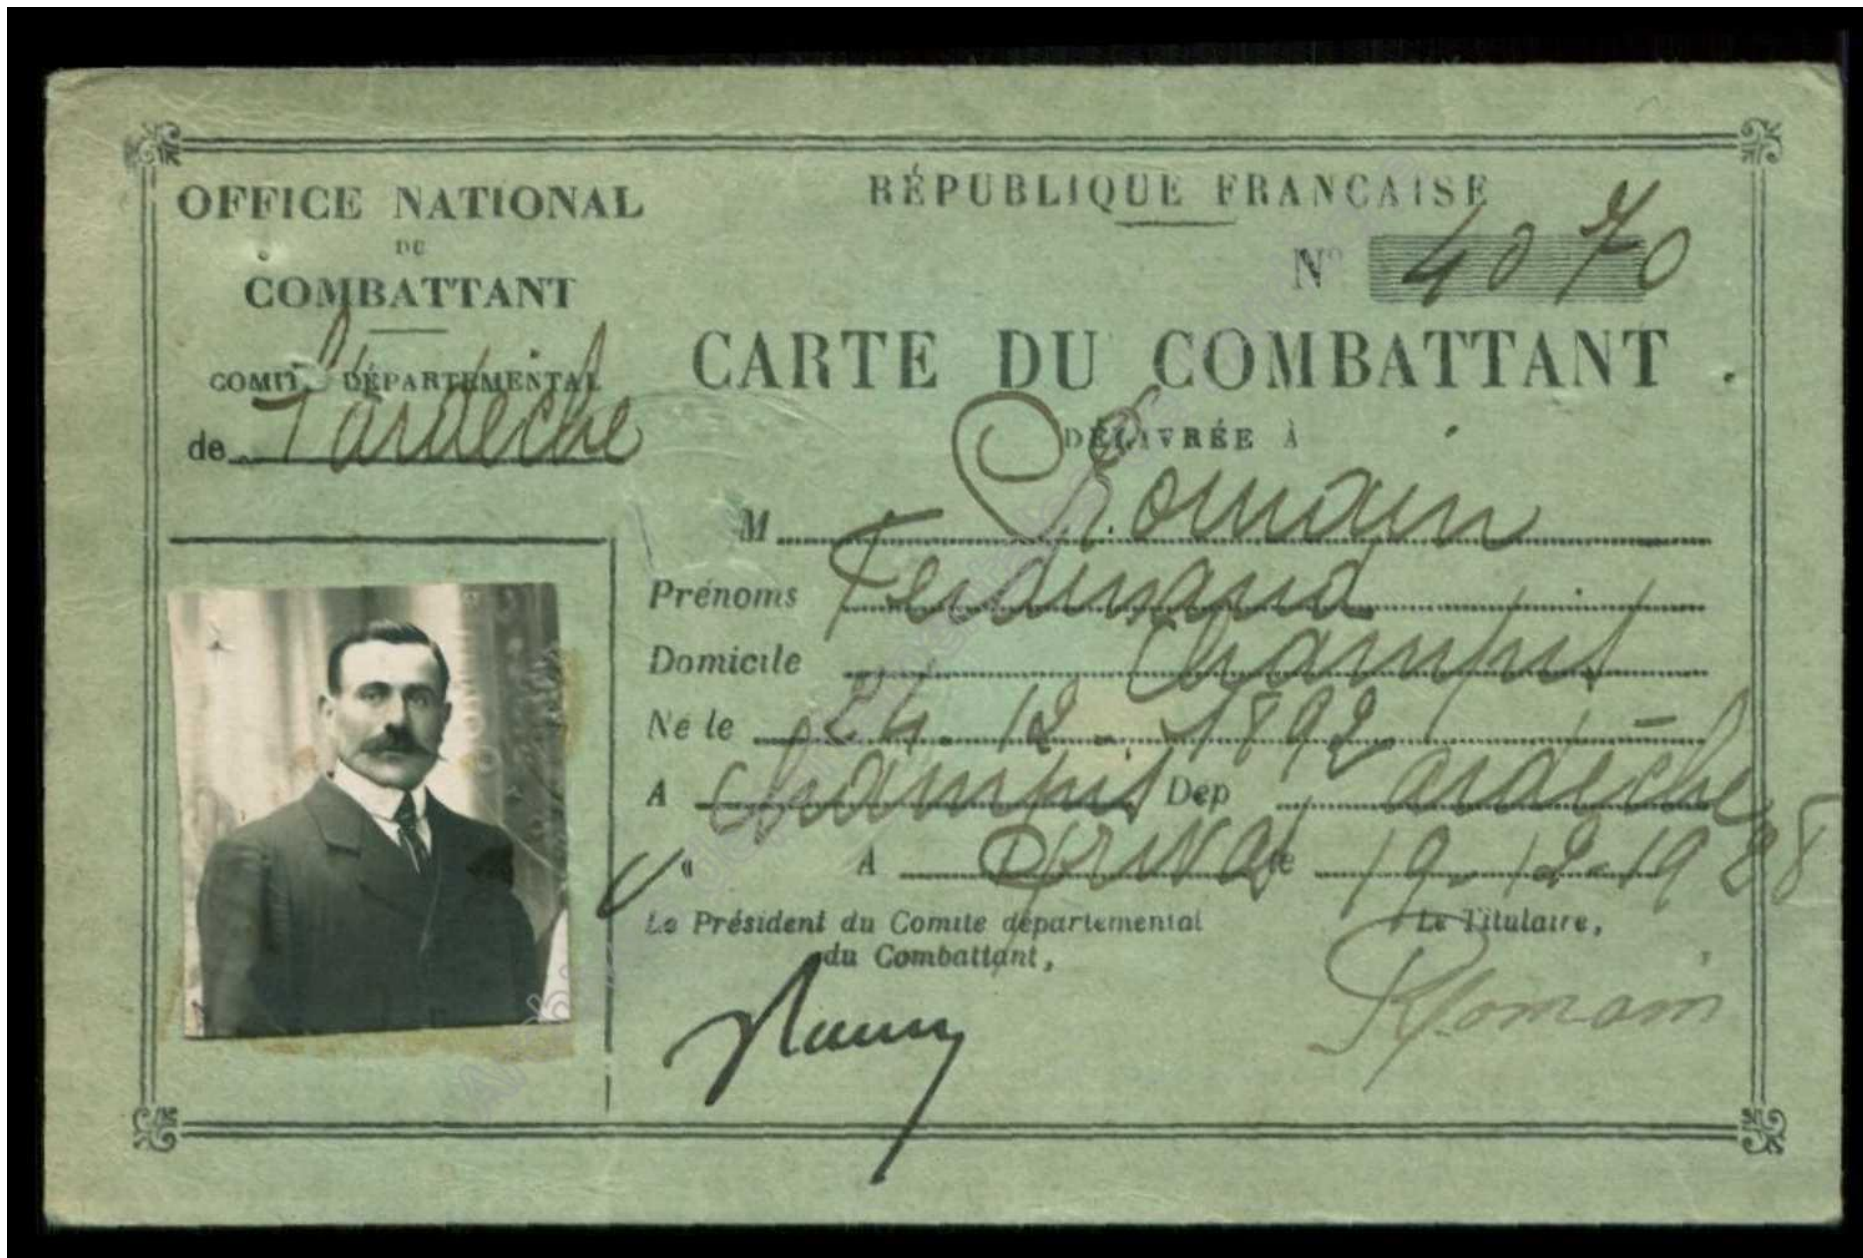 OFFICE NATIONAL
DU
COMBATTANT
COMITÉ DÉPARTEMENTAL
de l'ardèche
RÉPUBLIQUE FRANÇAISE
N° 4070
CARTE DU COMBATTANT
DÉLIVRÉE À
M Romain
Prénoms Ferdinand
Domicile Champis
Né le 24-12-1892
A Champis Dep ardèche
A Privas le 19-12-1928
Le Président du Comité départemental
du Combattant,
Le Titulaire,
Romain